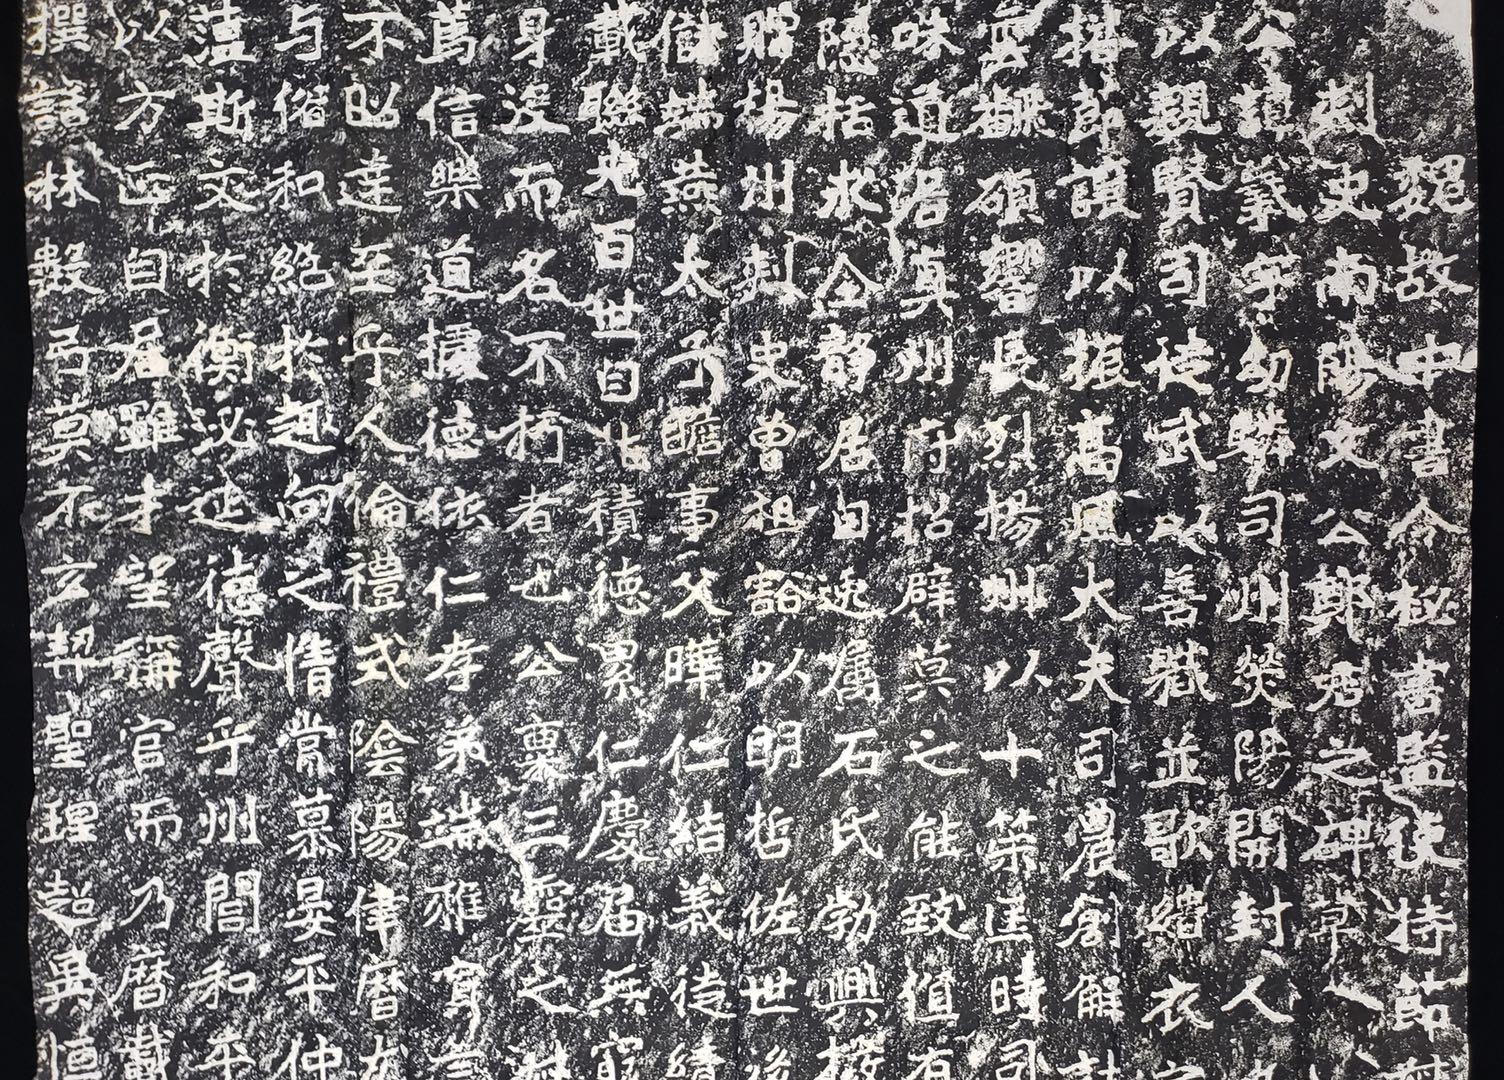 魏故中書令秘書監使持節
刺史南陽文公鄭君之碑草
公諱羲字幼驎司州熒陽開封人
以親賢司徒武以善職並歌緇衣
播節讓以振高風大夫司農創解
雲頹碩響長烈揚州以十筞匡時司
味道居真州府招辟莫之能致值有
隱括求全靜居自逸屬石氏勃興撥
贈揚州刺史曾祖豁以明哲佐世後
偹端燕太子瞻事父曄仁結義徒績
載聯光百世自 積德累仁慶屆無窮
身沒而名不朽者也公稟三靈之
篤信樂道據德依仁孝弟端雅實言
不臨達至乎人倫禮式陰陽律曆尤
与偕和絕於趣向之情常慕晏平仲
蕩斯文於衡泌延德聲乎州閭和平
以方正自居雖才望稱官而乃曆載
撰諸林數号莫不玄契聖理超異恒